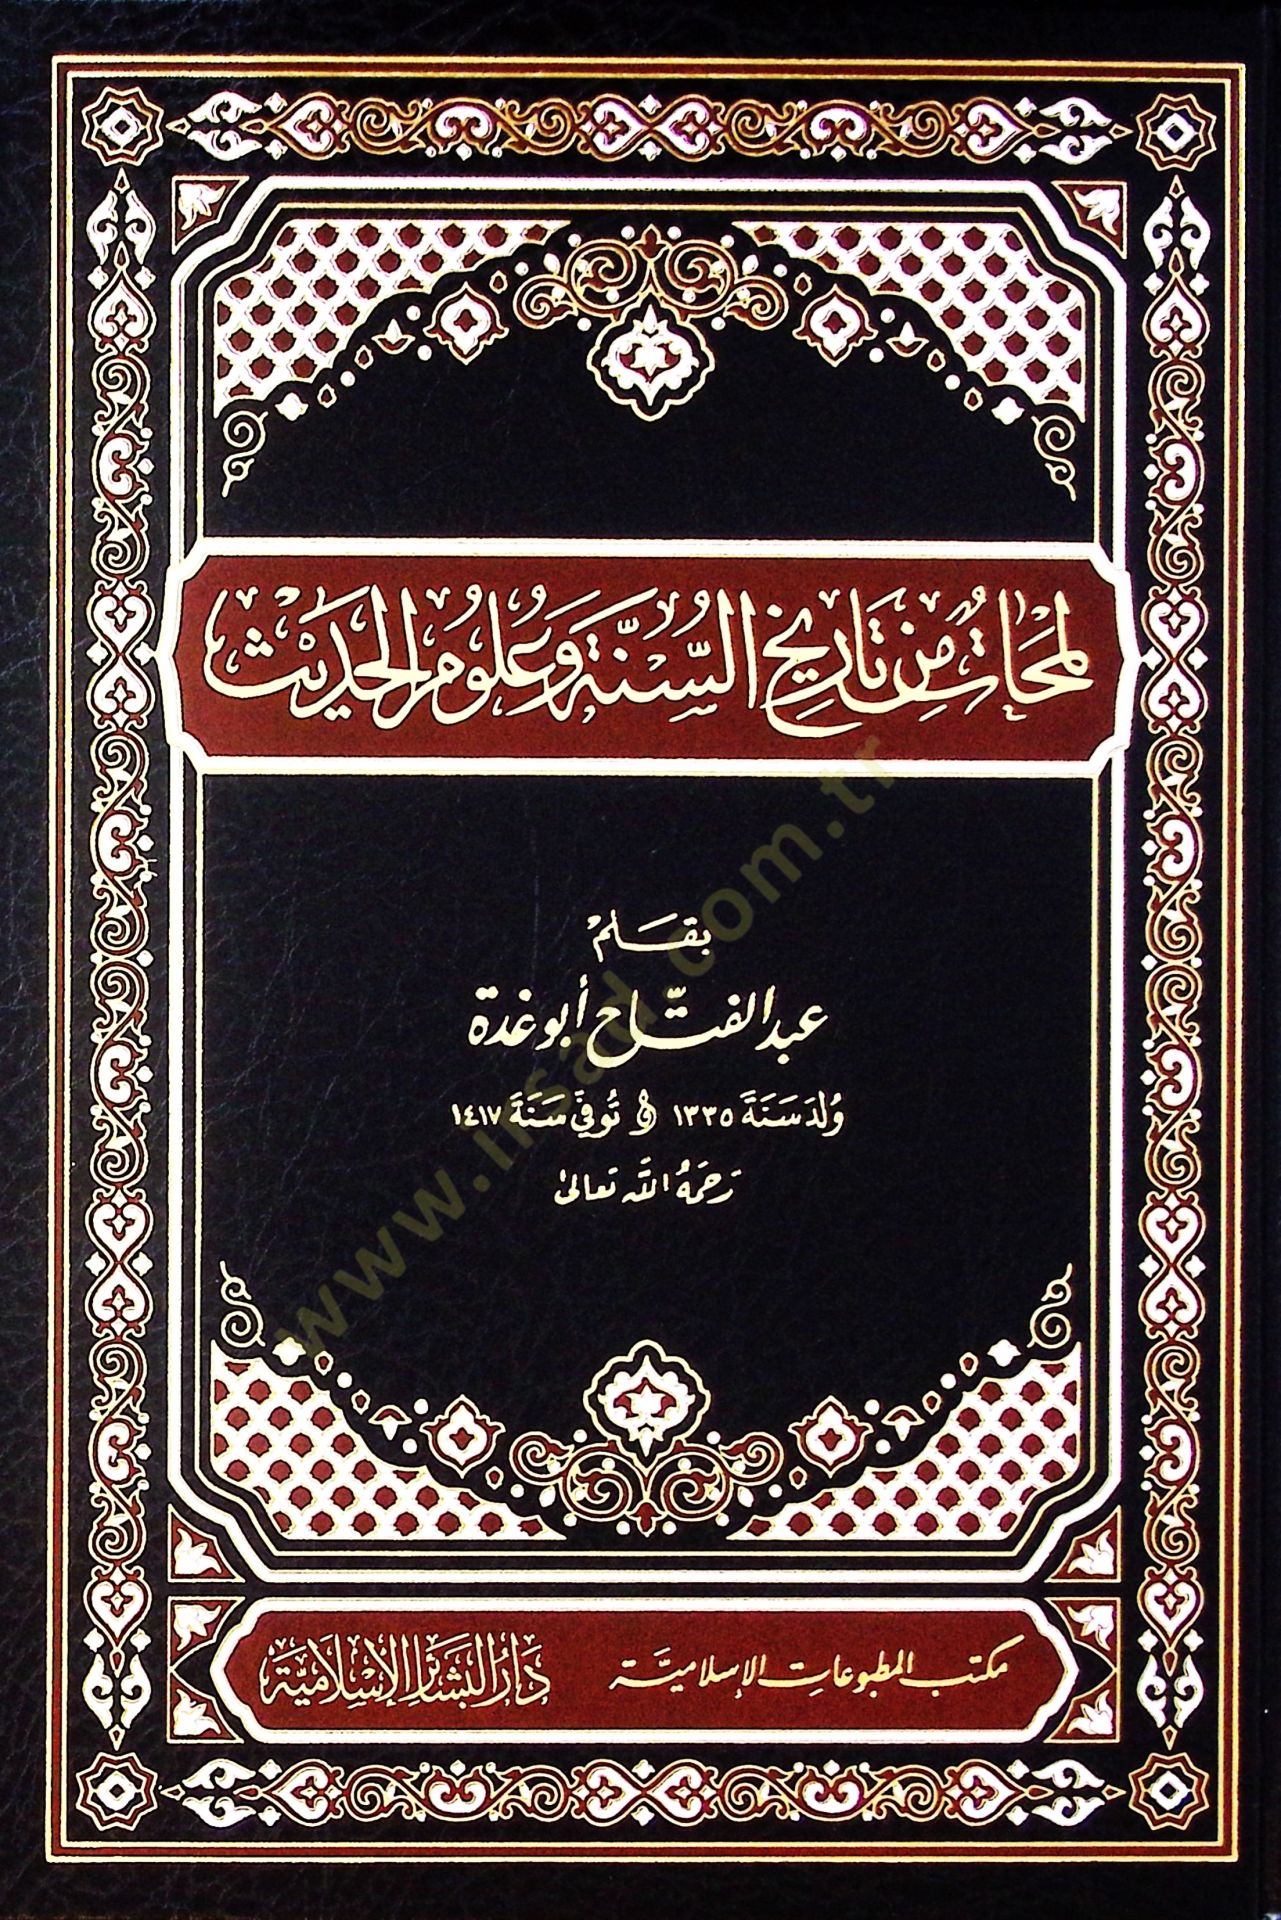 لمحات من تاريخ السنة وعلوم الحديث
بقلم
عبد الفتاح أبو غدة
ولد سنة ١٣٣٥ وتوفي سنة ١٤١٧
رحمه الله تعالى
مكتب المطبوعات الإسلامية
دار البشائر الإسلامية
www.irsad.com.tr